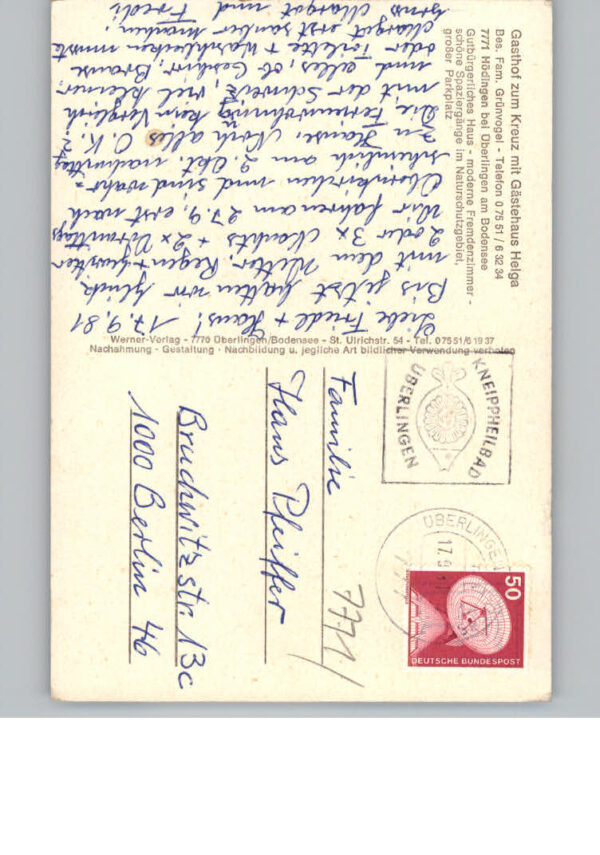 Gasthof zum Kreuz mit Gästehaus Helga
Bes. Fam. Grünvogel - Telefon 0 75 51 / 6 32 34
7771 Hödingen bei Überlingen am Bodensee
Gutbürgerliches Haus - moderne Fremdenzimmer -
schöne Spaziergänge im Naturschutzgebiet,
großer Parkplatz
Liebe Friedl + Hans! 17.9.81
Bis jetzt hatten wir Glück
mit dem Wetter. Regen + Gewitter
2 oder 3x Nachts + 2x Vormittags
Wir fahren am 27.9. erst nach
Obernkirchen und sind wahr=
scheinlich am 2. Okt. nachmittag
zu Hause. Noch alles O.K.?
Die Ferienwohnung kein Vergleich
mit der Schweiz, viel kleiner,
und alles, ob Geschirr, Brause
oder Toilette + Waschbecken musste
Margot erst sauber machen.
Gruss Margot und Friedl
Werner-Verlag - 7770 Überlingen/Bodensee - St. Ulrichstr. 54 - Tel. 07551/61937
Nachahmung - Gestaltung - Nachbildung u. jegliche Art bildlicher Verwendung verboten
KNEIPPHEILBAD
ÜBERLINGEN
ÜBERLINGEN
17.9
50
DEUTSCHE BUNDESPOST
7771/
Familie
Hans Pfeiffer
Bruchwitzstr. 13c
1000 Berlin 46